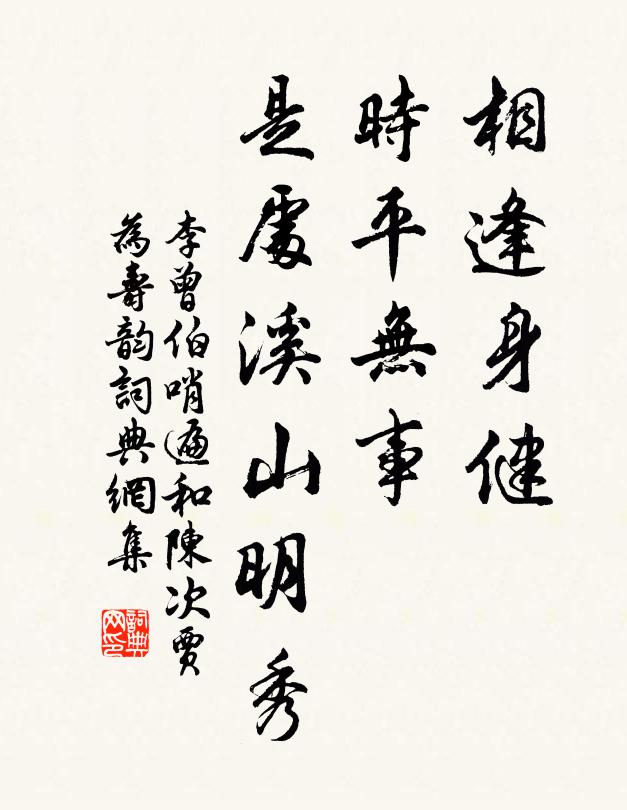 相逢身健
時平無事
是處溪山明秀
李曾伯哨遍和陳次賈
為壽韵詞典網集
詞典网印